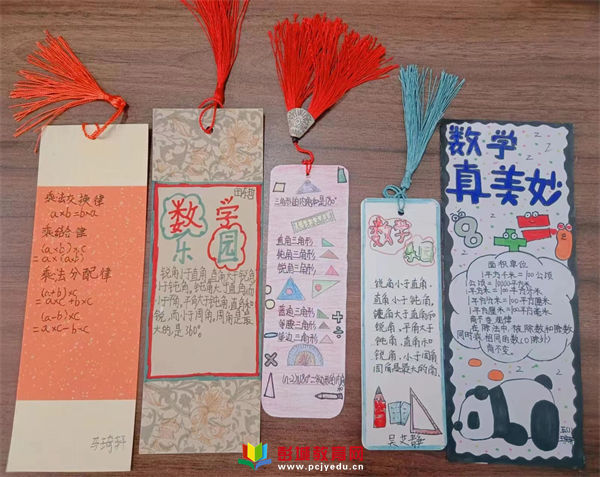 乘法交换律
a×b=b×a
乘法结合律
(a×b)×c
=a×(a×b)
乘法分配律
(a+b)×c
=a×c+b×c
(a-b)×c
=a×c-b×c
数学
乐园
锐角小于直角,直角大于锐角
小于钝角,钝角大于直角而
小于平角,平角大于钝角直角和
锐角,而小于周角,周角是最
大的是360°。
三角形的内角和是180°
直角三角形
钝角三角形
锐角三角形
等腰三角形
等边三角形
数学
乐园
锐角小于直角,
直角小于钝角,
钝角大于直角和
锐角,平角大于
钝角,直角和
锐角,小于周角
周角是最大的角。
数学
真美妙
8÷=
面积单位
1平方千米=100公顷
1公顷=10000平方米
1平方米=100平方分米
1平方分米=100平方厘米
1平方厘米=100平方毫米
商不变规律
在除法中,被除数和除数
同时乘相同的数(0除外)
商不变。
彭城教育网
www.pcjyedu.cn